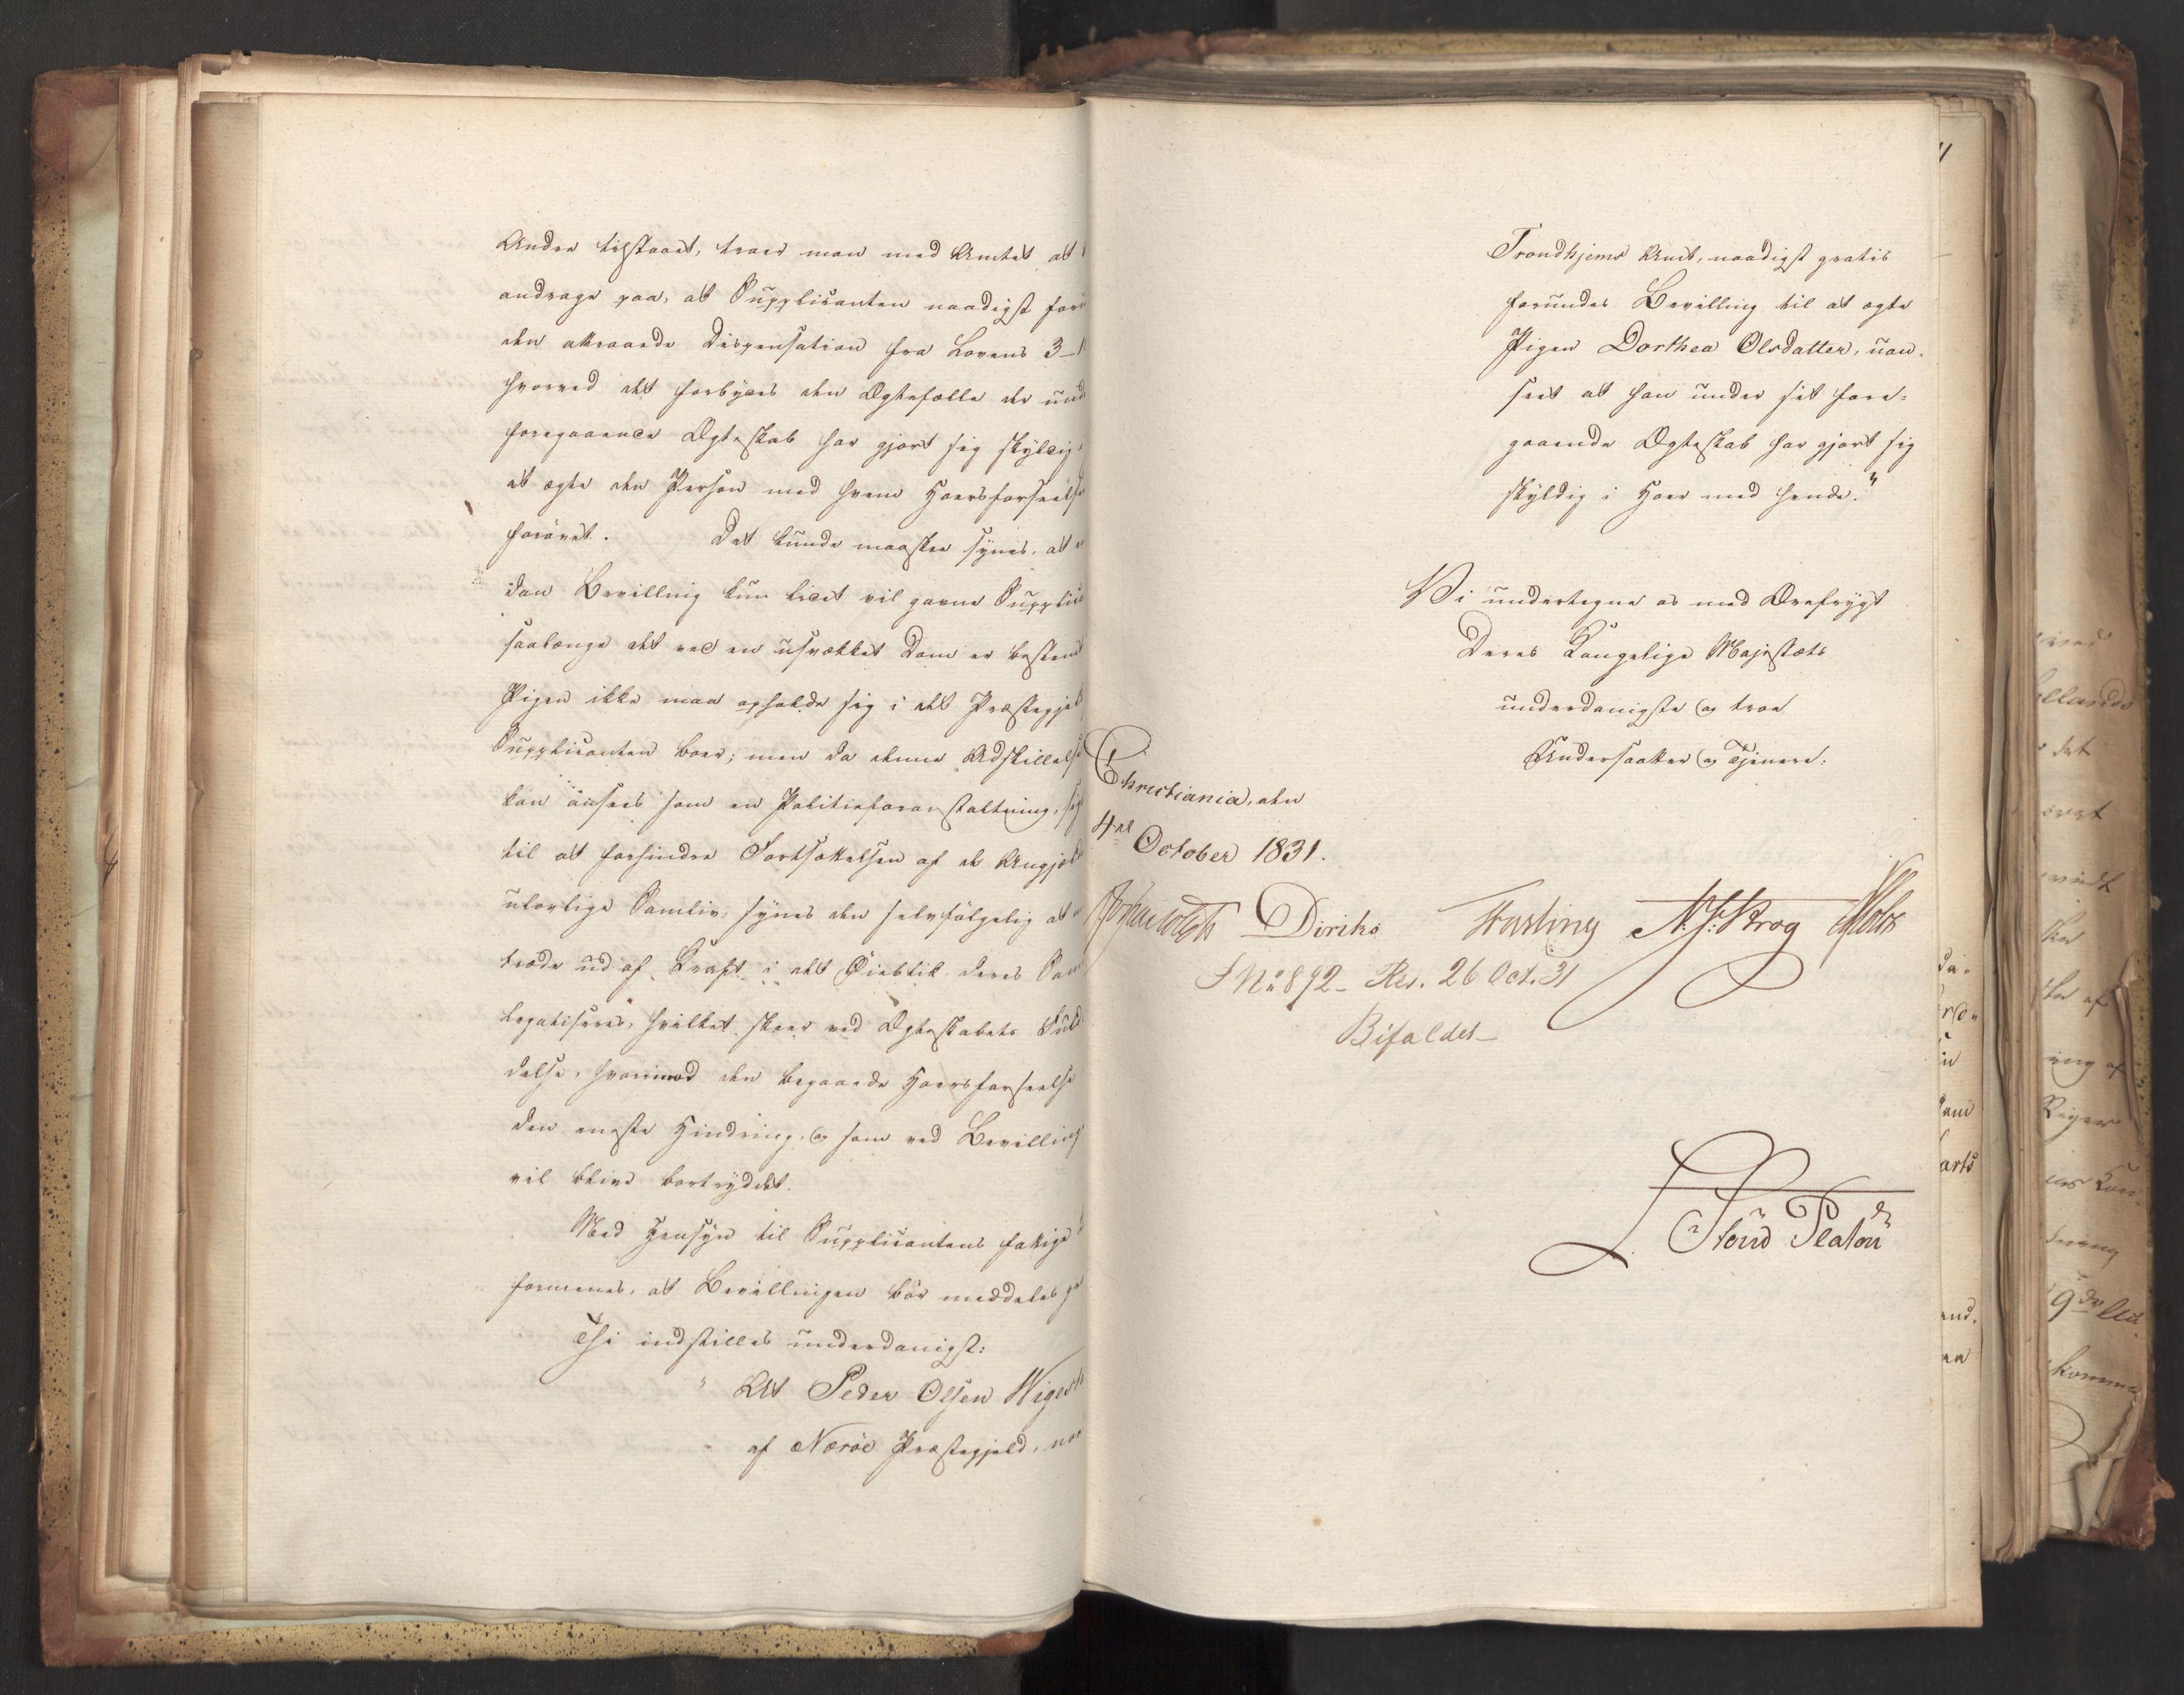 Andre tilstaaet, troer man med Amtet at
andrage paa, at Supplicanten naadigst for
den attraaede Dispensation fra Lovens 3-1
hvorved det forbydes den Ægtefælle der und
foregaaende Ægteskab har gjort sig skyldig
at ægte den Person med hvem Hoersforseelse
forövet. Det kunde maaskee synes, at
dan Bevilling kun lidet vil gavne Supplic
saalænge det ved en usvækket Dom er bestemt
Pigen ikke maa opholde sig i det Præstegjeld
Supplicanten boer; men da denne Adskillelse
kan ansees som en Politieforanstaltning, sig
til at forhindre Fortsættelsen af de Angjeld
ulovlige Samliv, synes den selvfölgelig at
træde ud af Kraft i det Öieblik deres Sam
legaliseres, hvilket skeer ved Ægteskabets Fuld
delse, hvorimod den begaaede Hoersforseelse
den eneste Hindring, og som ved Bevilling
vil blive bortryddet.
Med Hensyn til Supplicantens fattige
formenes, at Bevillingen bör meddeles gr
Thi indstilles underdanigst:
"At Peder Olsen Wiger
af Næröe Præstegjeld, nor
Trondhjems Amt, naadigst gratis
forundes Bevilling til at ægte
Pigen Dorthea Olsdatter, uan-
seet at han under sit fore-
gaaende Ægteskab har gjort sig
skyldig i Hoer med hende."
Vi undertegne os med Ærefrygt
Deres Kongelige Majestæts
underdanigste og troe
Undersaatter og Tjenere.
Christiania, den
4de October 1831.
Diriks Fasting N. J. Krog
No 892- Res. 26 Oct. 31
Bifaldet-
Stoud Platou